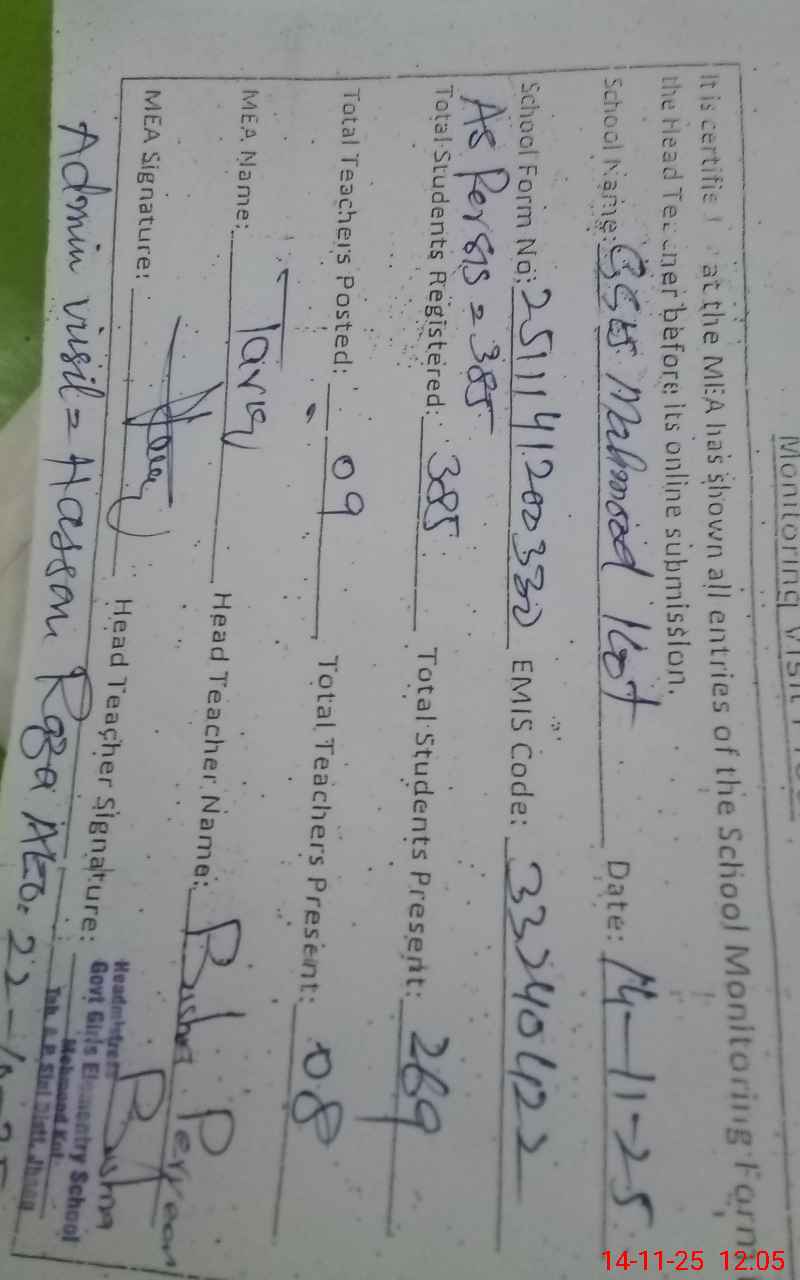 Monitoring Visit
It is certified that the MEA has shown all entries of the School Monitoring Form
the Head Teacher before its online submission.
School Name: GGES Mahmood Kot Date: 14-11-25
School Form No: 2511141200330 EMIS Code: 33240422
As Per SIS = 385
Total Students Registered: 385 Total Students Present: 269
Total Teachers Posted: 09 Total Teachers Present: 08
MEA Name: Tariq Head Teacher Name: Bushra Perveen
MEA Signature: Head Teacher Signature: Bushra
Headmistress
Govt Girls Elementry School
Mehmood Kot
Teh. & Distt. Jhang
Admin visit = Hassan Raza AEO. 22-10-25
14-11-25 12:05